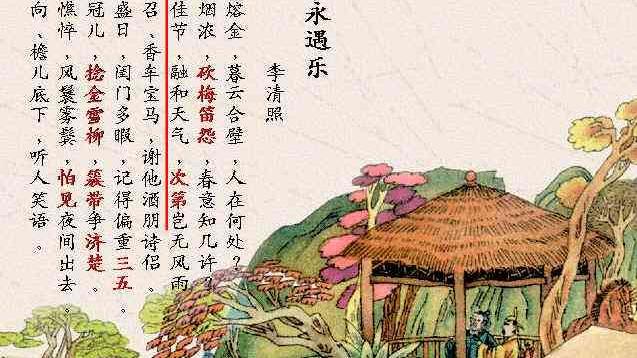 永遇乐
李清照
熔金,暮云合壁,人在何处?
烟浓,砍梅笛怨,春意知几许?
佳节,融和天气,次第岂无风雨
召、香车宝马,谢他酒朋诗侣。
盛日,闺门多暇,记得偏重三五。
冠儿,捻金雪柳,簇带争济楚。
憔悴,风鬟雾鬓,怕见夜间出去。
向、檐儿底下,听人笑语。